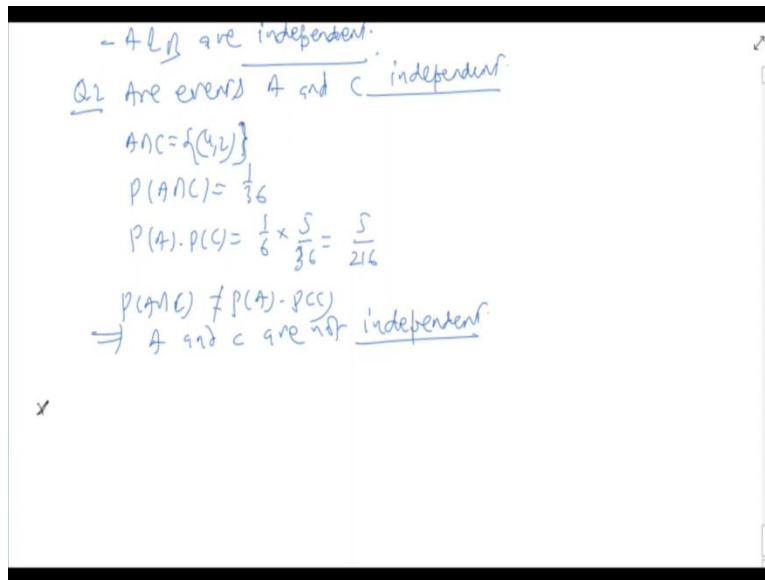 - A & B are independent.
Q2 Are events A and C independent.
A∩C = {(4,2)}
P(A∩C) = 1/36
P(A).P(C) = 1/6 × 5/36 = 5/216
P(A∩C) ≠ P(A).P(C)
⇒ A and C are not independent.